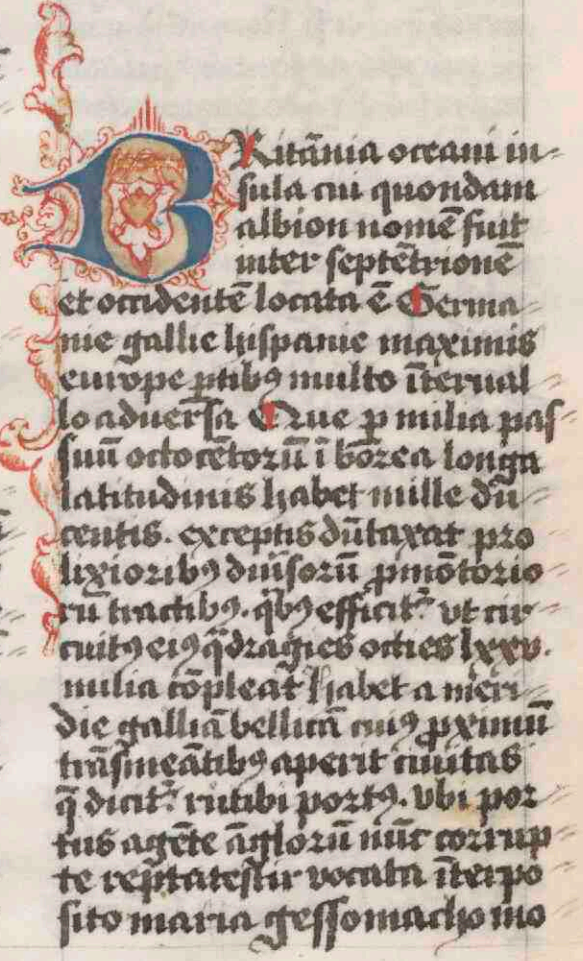 BRitānia occeani in-
sula cui quondam
albion nomē fuit
inter septētrionē
et occidentē locata ē Germa
nie gallie hispanie maximis
europe ꝑtibꝰ multo īterual
lo aduersa Que ꝑ milia pas
suū octocētorū ī borea longa
latitudinis habet mille dū
centis. exceptis dūtaxat pro
lixioribꝰ diuisorū ꝓmōtorio
rū tractibꝰ. qͥbꝰ efficit᷑ vt cir
cuitꝰ eiꝰ qͣdragies octies lxxv.
milia cōpleat habet a meri
die galliā bellicā cuiꝰ ꝓximū
trāsmeātibꝰ aperit ciuitas
q̄ dicit᷑ rutibi portꝰ. vbi por
tus a gēte āglorū nūc corrup
te vocata īterpo
sito maria gessomacho mo